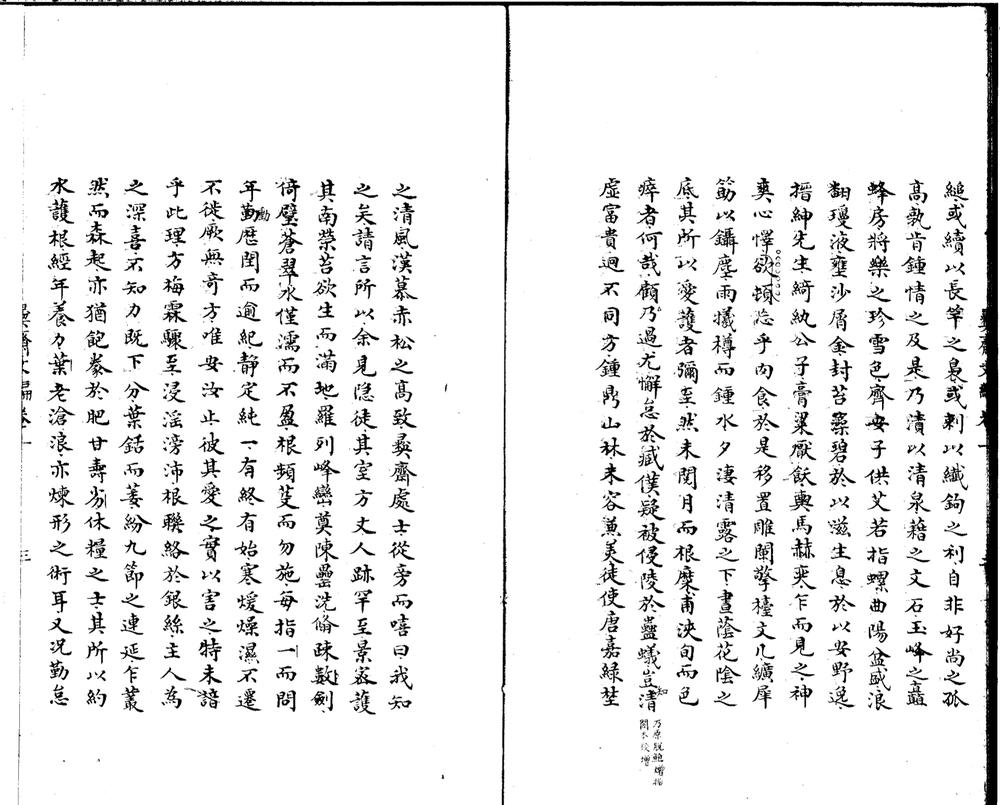 縋或續以長竿之裊或刺以纖鉤之利自非好尚之孤
高孰肯鍾情之及是乃漬以清泉藉之文石玉峰之矗
蜂房將樂之珍雪色齊安子供艾若指螺曲陽盆盛浪
翻瓊液壅沙屑金封苔蔂碧於以滋生息於以安野逸
搢紳先生綺紈公子膏粱厭飫輿馬赫奕乍而見之神
爽心懌欲頓忘乎肉食於是移置雕闌擎檯文几纊犀
筯以鑷塵雨犧樽而鍾水夕淒清露之下晝蔭花陰之
底其所以愛護者彌至然未閱月而根糜甫浹旬而色
瘁者何哉顧乃過尤懈怠於臧僕疑被侵陵於蠹蟻豈清
知
乃原脫鮑增指
閣本後增
虛富貴迥不同方鍾鼎山林未容兼美徒使唐嘉綠埜
之清風漢慕赤松之高致彝齋處士從旁而嘻曰我知
之矣請言所以余見隐徒其室方丈人跡罕至景客護
其南榮苔欲生而滿地羅列峰巒奠陳罍洗脩疎數劍
倚壁蒼翠水僅濡而不盈根頻芟而勿施每指一而問
年動勩曆閏而逾紀靜定純一有終有始寒煖燥濕不遷
不徙厥無奇方唯安汝止彼其愛之實以害之特未諳
乎此理方梅霖驟至浸淫滂沛根聯絡於銀絲主人為
之深喜不知力既下分葉銛而萎紛九節之連延乍叢
然而森起亦猶飽豢於肥甘壽劣休糧之士其所以約
水護根經年養力葉老滄浪亦煉形之術耳又况勤怠
彝齋文編卷一
三